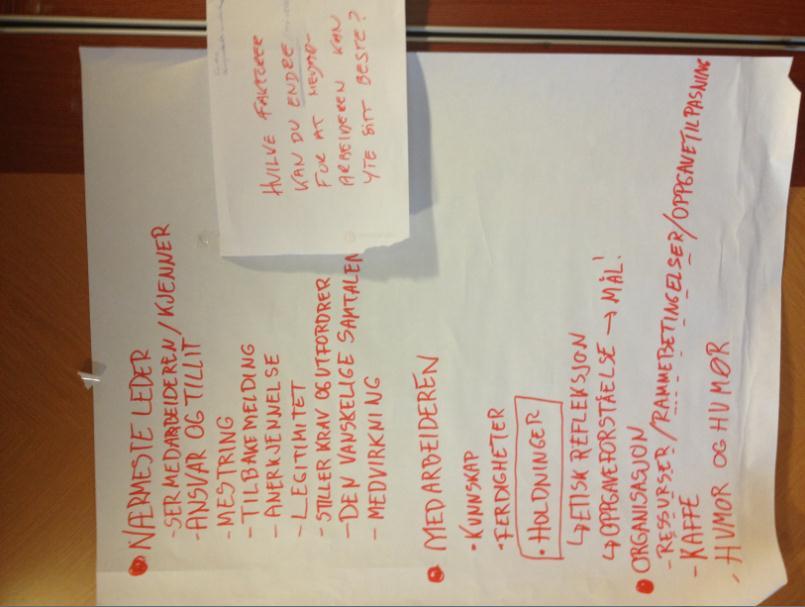 HVILKE FAKTORER
KAN DU ENDRE
FOR AT MEDAR-
ARBEIDEREN KAN
YTE SITT BESTE?
• NÆRMESTE LEDER
- SER MEDARBEIDEREN / KJENNER
- ANSVAR OG TILLIT
- MESTRING
- TILBAKEMELDING
- ANERKJENNELSE
- LEGITIMITET
- STILLER KRAV OG UTFORDRER
- DEN VANSKELIGE SAMTALEN
- MEDVIRKNING
• MEDARBEIDEREN
• KUNNSKAP
• FERDIGHETER
• HOLDNINGER
↳ ETISK REFLEKSJON
↳ OPPGAVEFORSTÅELSE → MÅL!
• ORGANISASJON
- RESSURSER / RAMMEBETINGELSER / OPPGAVETILPASNING
- KAFFE
- HUMOR OG HUMØR